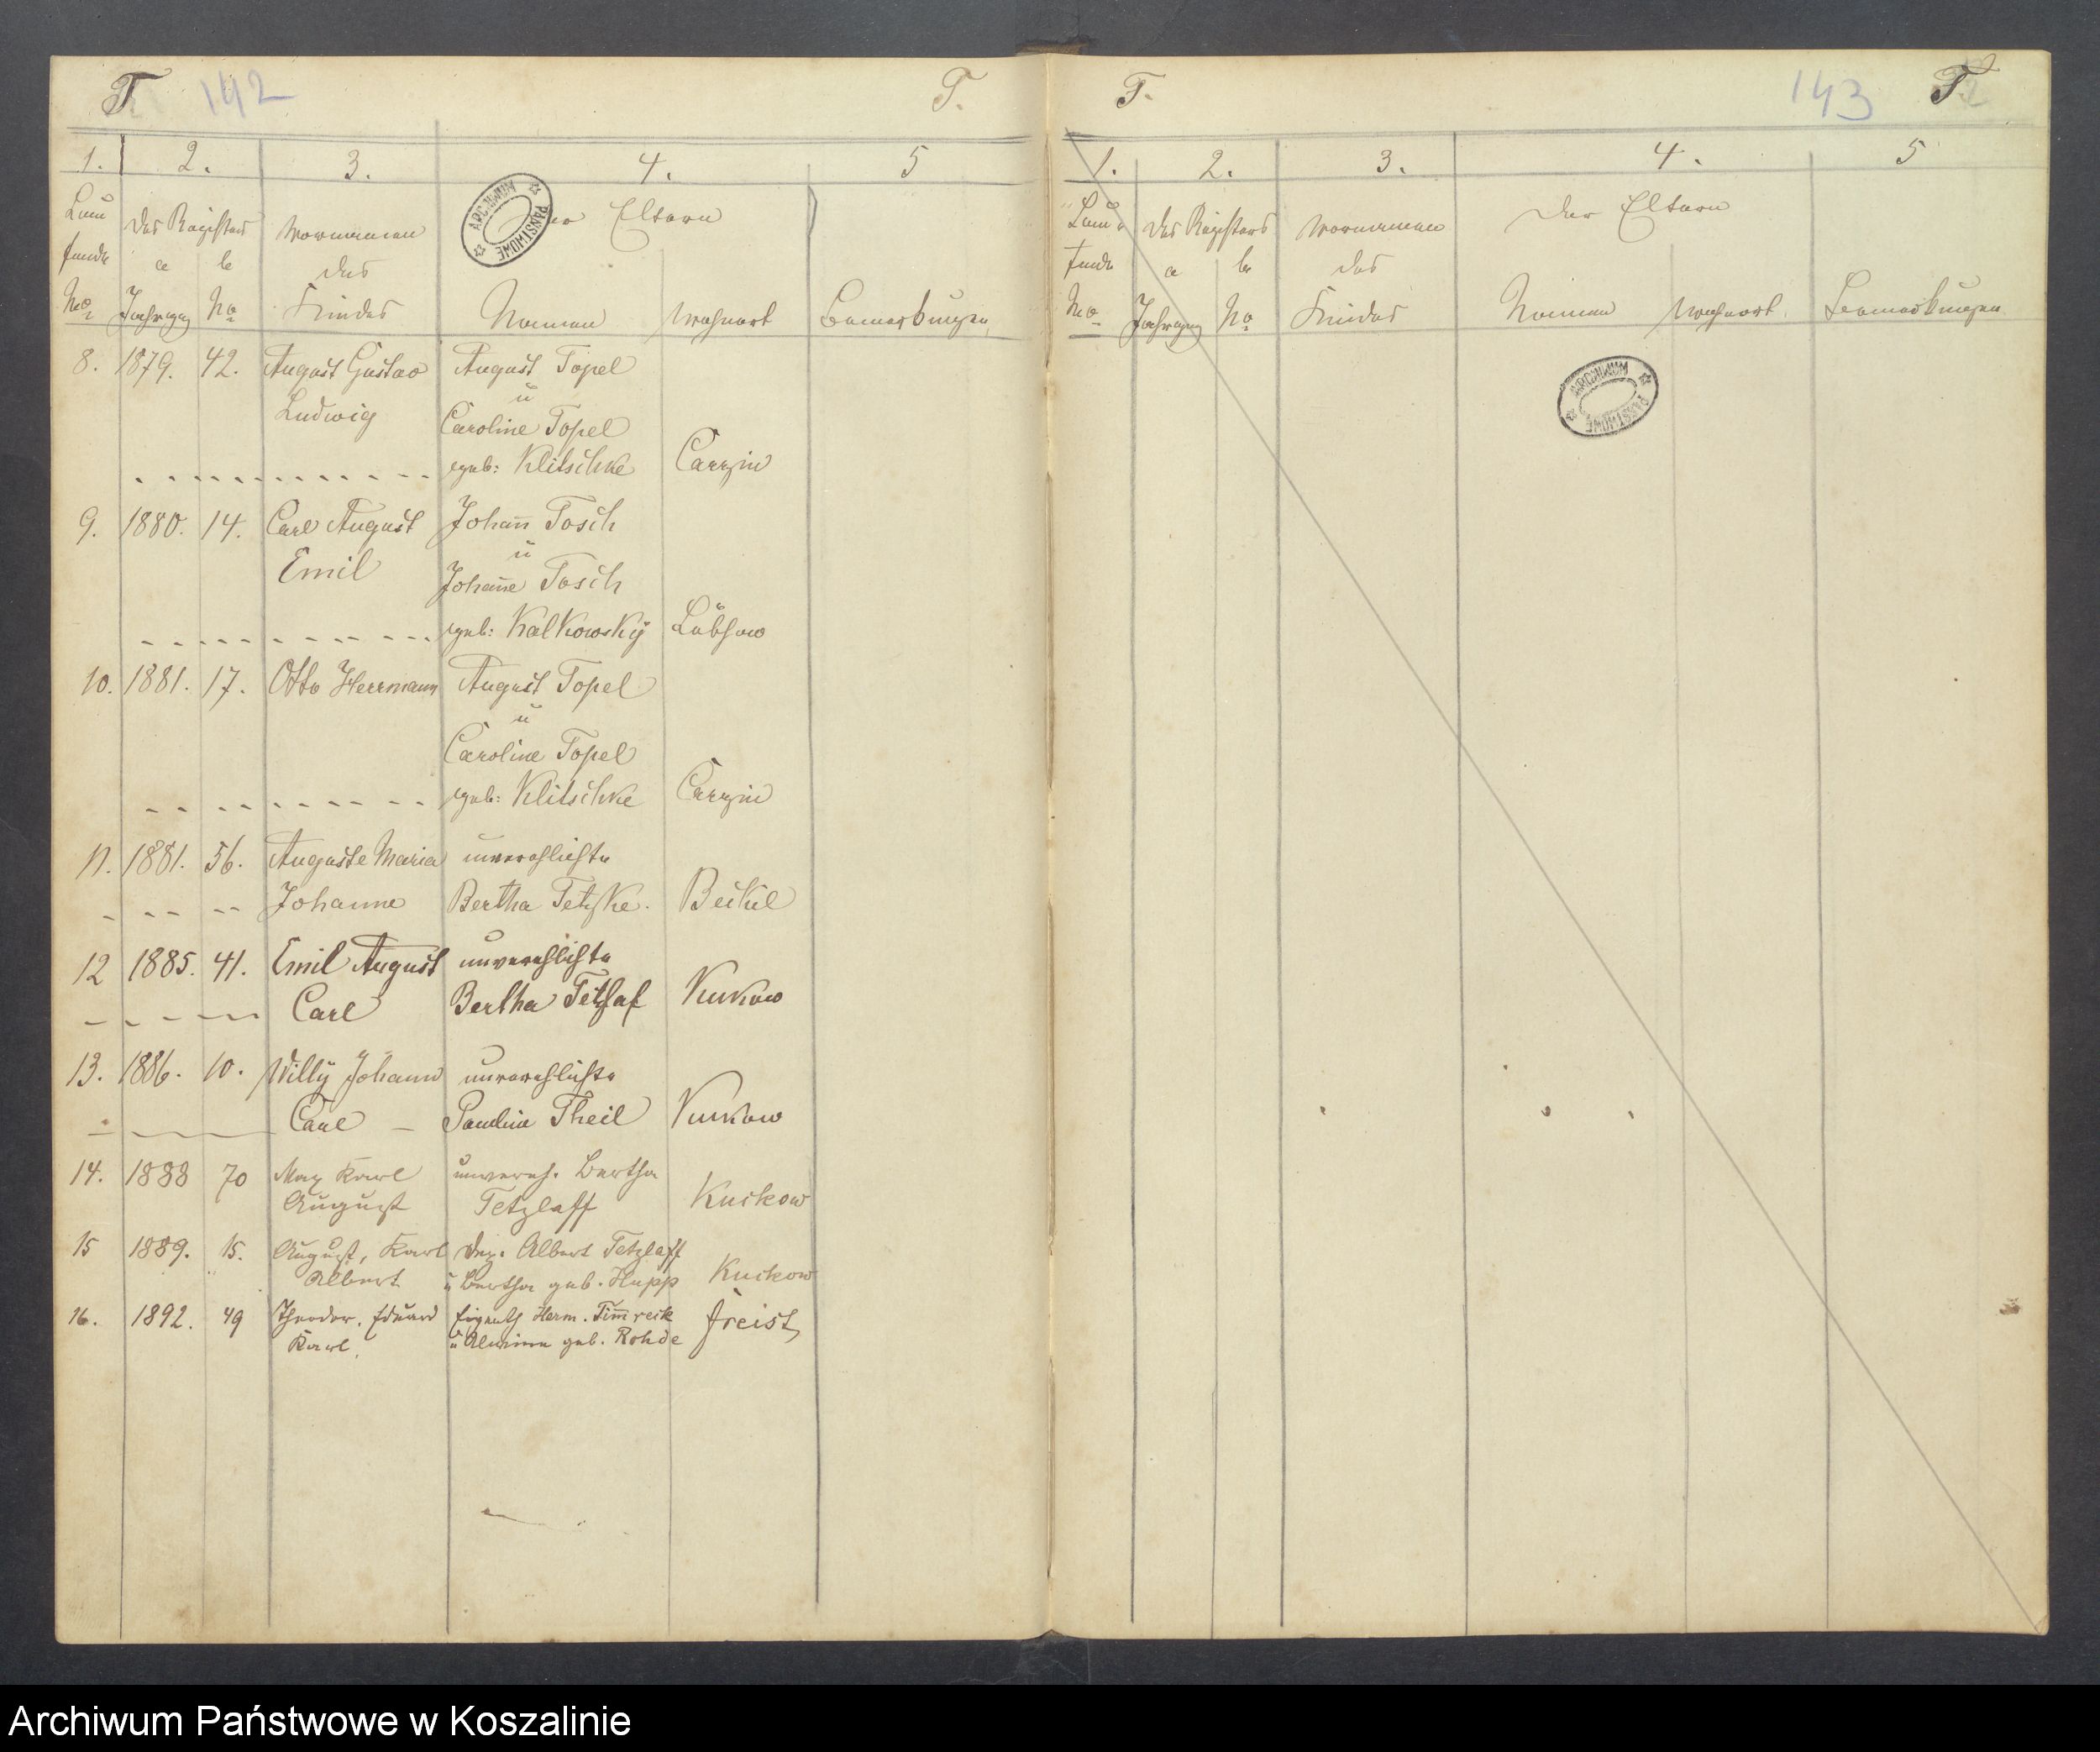 T 142 T.
1. 2. 3. 4. 5
Lau des Registers Vornamen der Eltern
fende a b des
No Jahrgang No Kindes Namen Wohnort Bemerkungen
8. 1879. 42. August Gustav August Topel
u
Ludwig Caroline Topel
geb: Klitschke Carzin
9. 1880. 14. Carl August Johan̄ Tosch
u
Emil Johan̄e Tosch
geb: Kalkowsky Lübzow
10. 1881. 17. Otto Herrmann August Topel
u
Caroline Topel
geb: Klitschke Carzin
11. 1881. 56. Auguste Maria unverehlichte
Johanne Bertha Tetzke. Beckel
12 1885. 41. Emil August unverehlichte
Carl Bertha Tetzlaf Kukow
13. 1886. 10. Willy Johann unverehlichte
Carl – Pauline Theil Kukow
14. 1888 70 Max Karl unvereh. Bertha
August Tetzlaff Kuckow
15 1889. 15. August, Karl Albert Tetzlaff
Albert u Bertha geb. Hupp Kuckow
16. 1892. 49 Theodor, Eduard Eigenth Herm. Tim̄reck
Karl. u Alwine geb. Rohde Freist
T. 143 T
1. 2. 3. 4. 5
Lau des Registers Vornamen der Eltern
fende a b des
No Jahrgang No Kindes Namen Wohnort. Bemerkungen
ARCHIWUM PAŃSTWOWE
ARCHIWUM PAŃSTWOWE
Archiwum Państwowe w Koszalinie